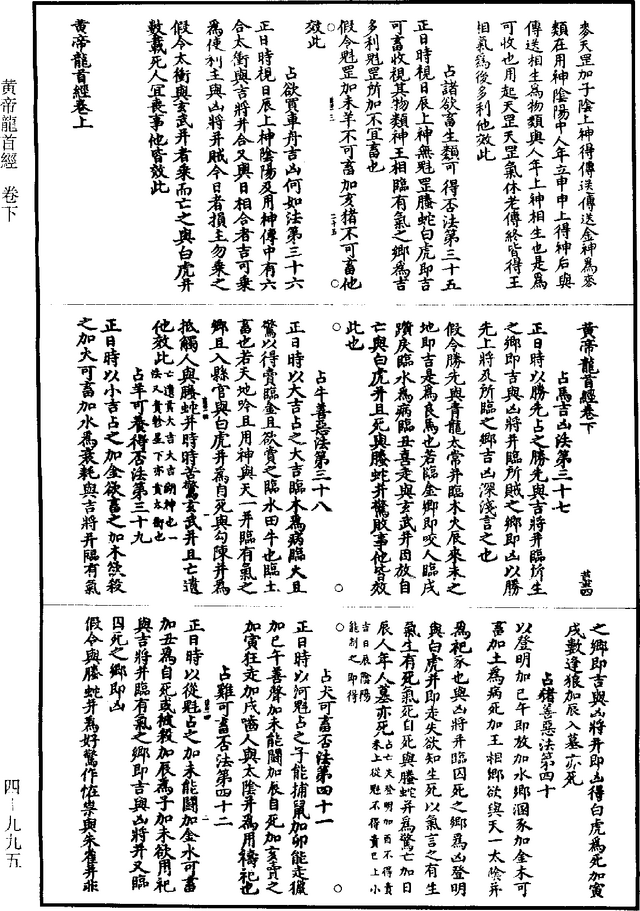 麥天罡加子陰上神得傳送傳送金神爲麥
類在用神陰陽中人年立申申上得神后與
傳送相生爲物類與人年上神相生也是爲
可收也用起天罡天罡氣休老傳終皆得王
相氣爲後多利他效此
占諸欲畜生類可得否法第三十五
正日時視日辰上神無魁罡螣蛇白虎即吉
可畜收視其物類神王相臨有氣之鄉爲吉
多利魁罡所加不宜畜也
假令魁罡加未羊不可畜加亥猪不可畜他
效此
占欲買車舟吉凶何如法第三十六
正日時視日辰上神陰陽及用神傳中有六
合太衝與吉將并合又與日相合者吉可乘
爲使利主與凶將并賊今日者損主勿乘之
假令太衝與玄武并者乘而亡之與白虎并
數載死人宜喪事他皆效此
黃帝龍首經卷上
黃帝龍首經卷下
占馬吉凶法第三十七
正日時以勝先占之勝先與吉將并臨所生
之鄉即吉與凶將并臨所賊之鄉即凶以勝
先上將及所臨之鄉吉凶深淺言之也
假令勝先與青龍太常并臨木火辰來未之
地即吉是爲良馬也若臨金鄉即咬人臨戌
蹟戾臨水爲病臨丑喜走與玄武并因放自
亡與白虎并且死與螣蛇并驚敗事他皆效
此也
占牛善惡法第三十八
正日時以大吉占之大吉臨木爲病臨火且
驚以得賣臨金且欲賣之臨水田牛也臨土
畜也若天地吟且用神與天一并臨有氣之
鄉且入縣官與白虎并爲自死與勾陳并爲
抵觸人與螣蛇并時時苦驚玄武并且亡遺
他效此
占羊可養得否法第三十九
正日時以小吉占之加金欲畜之加木欲殺
之加火可畜加水爲衰耗與吉將并臨有氣
之鄉即吉與凶將并即凶得白虎爲死加寅
戌數逢狼加辰入墓亦死
占豬善惡法第四十
以登明加巳午即放加水鄉溷豕加金木可
畜加土爲病死加王相鄉欲與天一太陰并
爲祀豕也與凶將并臨囚死之鄉爲凶登明
與白虎并即走失欲知生死以氣言之有生
氣生有死氣死自死與螣蛇并爲驚亡加日
辰人年人墓亦死
占犬可畜否法第四十一
正日時以河魁占之子能捕鼠加卯能走獵
加巳午善聲加未能鬪加辰自死加亥賣之
加寅狂走加戌嚙人與太陰并爲用禱祀也
占雞可畜否法第四十二
正日時以從魁占之加未能鬪加金水可畜
加丑爲自死或被殺加辰爲子加未欲用祀
與吉將并臨有氣之鄉即吉與凶將并又臨
囚死之鄉即凶
假令與螣蛇并爲好驚作怪祟與朱雀并非
黃帝龍首經 卷下
四-九九五